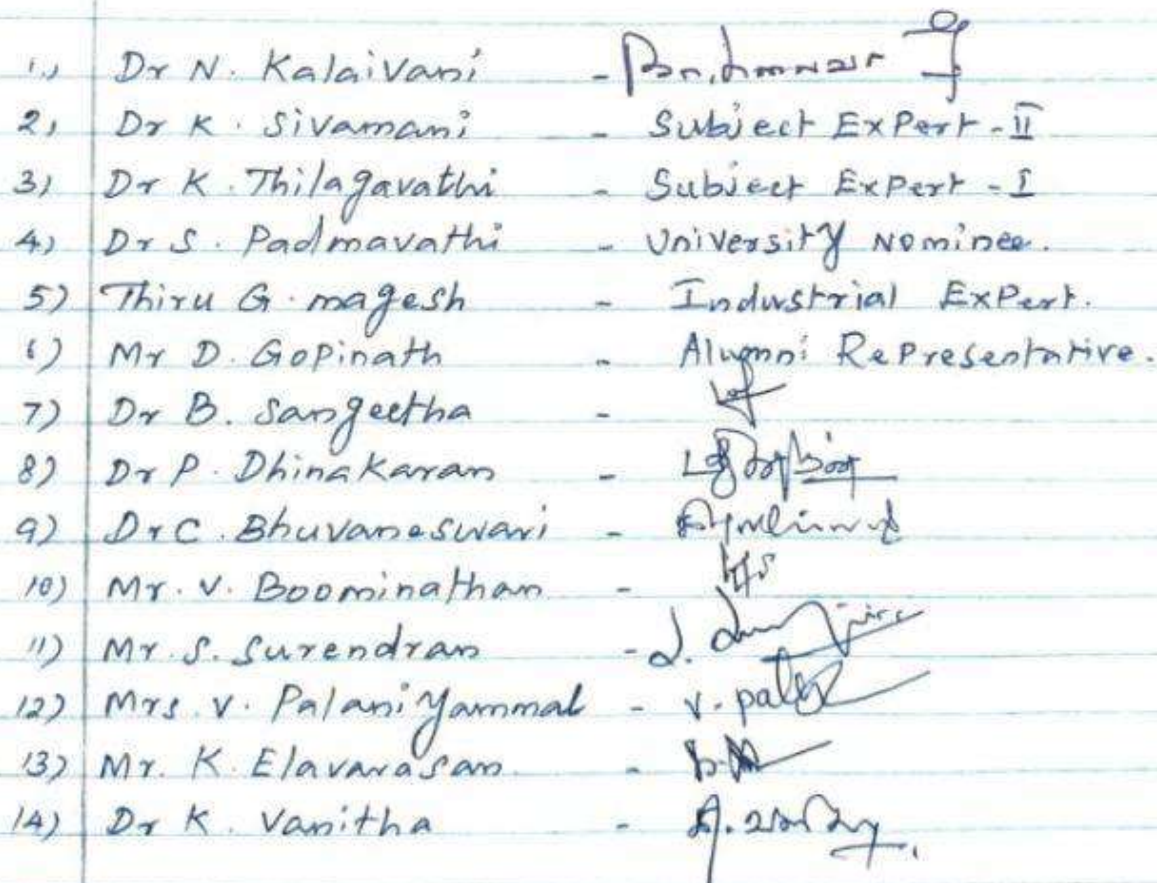 1.) Dr N. Kalaivani -
2) Dr K. Sivamani - Subject Expert - II
3) Dr K. Thilagavathi - Subject Expert - I
4) Dr S. Padmavathi - University Nominee.
5) Thiru G. magesh - Industrial Expert.
6) Mr D. Gopinath - Alumni Representative.
7) Dr B. Sangeetha -
8) Dr P. Dhinakaran -
9) Dr C. Bhuvaneswari -
10) Mr. V. Boominathan -
11) Mr. S. Surendran -
12) Mrs. V. Palaniyammal - V.
13) Mr. K. Elavarasan -
14) Dr K. Vanitha -